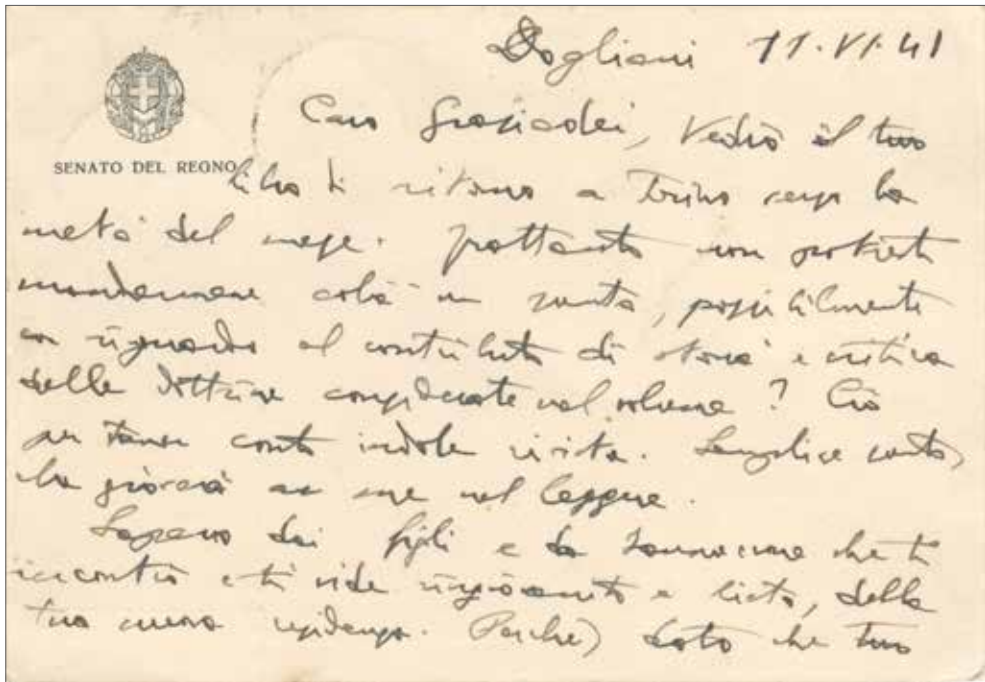 Dogliani 11.VI.41
SENATO DEL REGNO
Caro Graziadei, Vedrò il tuo
libro di ritorno a Torino verso la
metà del mese. Frattanto non potresti
mandarmene colà un sunto, possibilmente
con riguardo al contributo di storia e critica
delle dottrine considerate nel volume? Ciò
per tener conto indole rivista. Semplice sunto,
che gioverà a me nel leggere.
Sapevo dai figli e da che ti
incontrò e ti vide ringiovanito e lieto, della
tua nuova residenza. Perché, dato che tuo